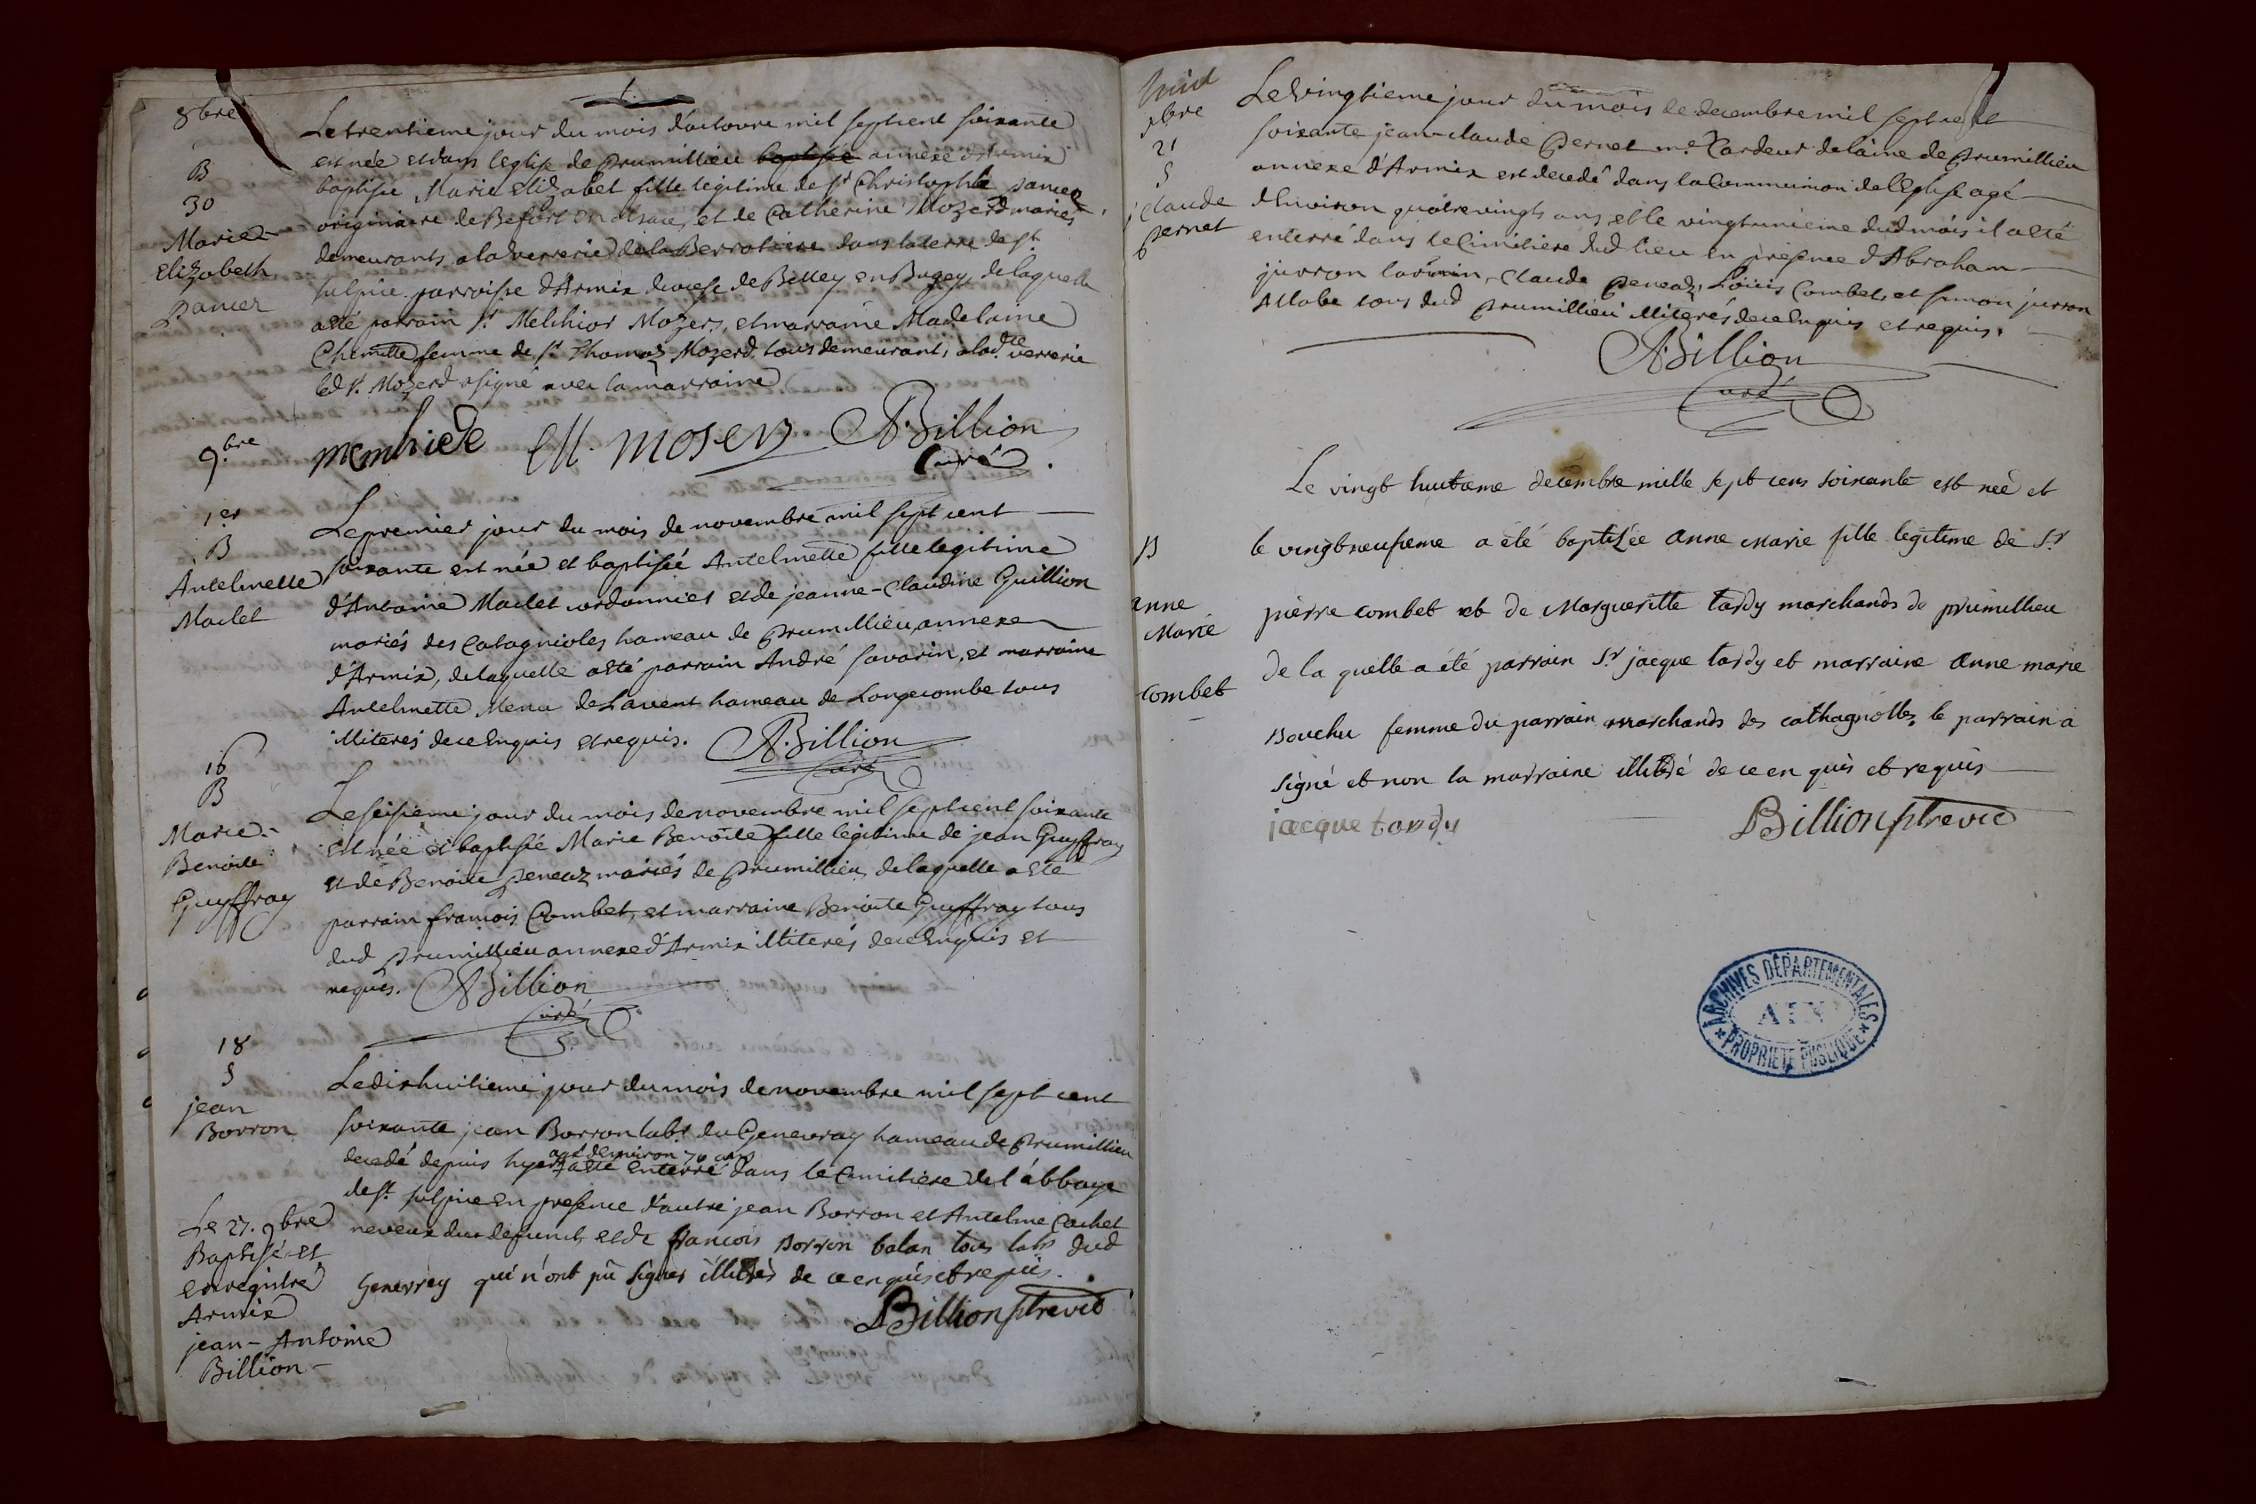 8bre
B
30
Marie
Elizabeth
Danier
Le trentieme jour du mois d'octovre mil sept cent soixante
est née et dans l'eglise de prumillieu annexe d'Armix
baptisée Marie Elizabet fille legitime de Sr Christophle
originaire de Befort en alsace, et de Catherine Mozerd mariés
demeurants a la verrerie de la Berrotiere dans la terre de St.
sulpice parroisse d'Armix diocese de Belley en Bugey, de laquelle
a été parrain Sr. Melchior Mozer, et marraine Madelaine
femme de Sr. Thomas Mozerd tous demeurants a lad.te verrerie
led Sr. Mozerd a signé avec la marraine
M. moser A. Billion
Curé
9.bre
1.er
B
Antelmette
Maclet
Le premier jour du mois de novembre mil sept cent
soixante est née et baptisée Antelmette fille legitime
d'Antoine Maclet cordonnier et de jeanne-Claudine Guillion
mariés des Catagnioles hameau de prumillieu annexe
d'Armix, de laquelle a été parrain André savarin, et marraine
Antelmette Menu de Lavent hameau de Longecombe tous
illiterés de ce enquis et requis. A. Billion
curé
16
B
Marie-
Benoite
Guyffray
Le seisieme jour du mois de novembre mil sept cent soixante
est née et baptisée Marie Benoite fille legitime de jean Guyffray
et de Benoite peneaz mariés de prumillieu de laquelle a été
parrain francois Combet, et marraine Benoite Guyffray tous
dud prumillieu annexe d'Armix illiterés de ce enquis et
requis. A Billion
Curé
18
S
jean
Borron
Le dixhuitieme jour du mois de novembre mil sept cent
soixante jean Borron labr du Genevray hameau de prumillieu
agé d'environ 70 ans
decedé depuis hyer a été enterré dans le cimitiere de l'abbaye
de St. sulpice en presence d'autre jean Borron et Antelme Cachet
neveux dud defunct, et de francois Borron balan tous labrs dud
Genevrey qui n'ont pû signer illiterés de ce enquis et requis.
Billion ptre vic
Le 27. 9bre
Baptisé et
enregistré
Armix
jean-Antoine
Billion-
bre
21
S
Claude
pernet
Le vingtieme jour du mois de decembre mil sept cent
soixante jean-claude pernet me Cardeur de laine de prumillieu
annexe d'Armix est decedé dans la Communion de l'Eglise agé
d'Environ quatrevingts ans, et le vingtunieme dud mois il a été
enterré dans le Cimitiere dud lieu en presence d'Abraham
jurron, Claude peneaz, Loüis Combet, et simon jurron
tous dud prumillieu illiterés de ce enquis et requis.
A. Billion
Curé
B
anne
Marie
Combet
Le vingt huitieme decembre mille sept cens soixante est neé et
le vingt neufieme a été baptizée anne Marie fille legitime de Sr
pierre combet et de Marguerite tardy marchands de prumillieu
de la quelle a été parrain Sr jacque tardy et marraine anne marie
Bouchu femme du parrain marchands des cathagnolles le parrain a
signé et non la marraine illiterée de ce en quis et requis
jacque tardy
Billion ptre vic
ARCHIVES DÉPARTEMENTALES
AIN
PROPRIÉTÉ PUBLIQUE